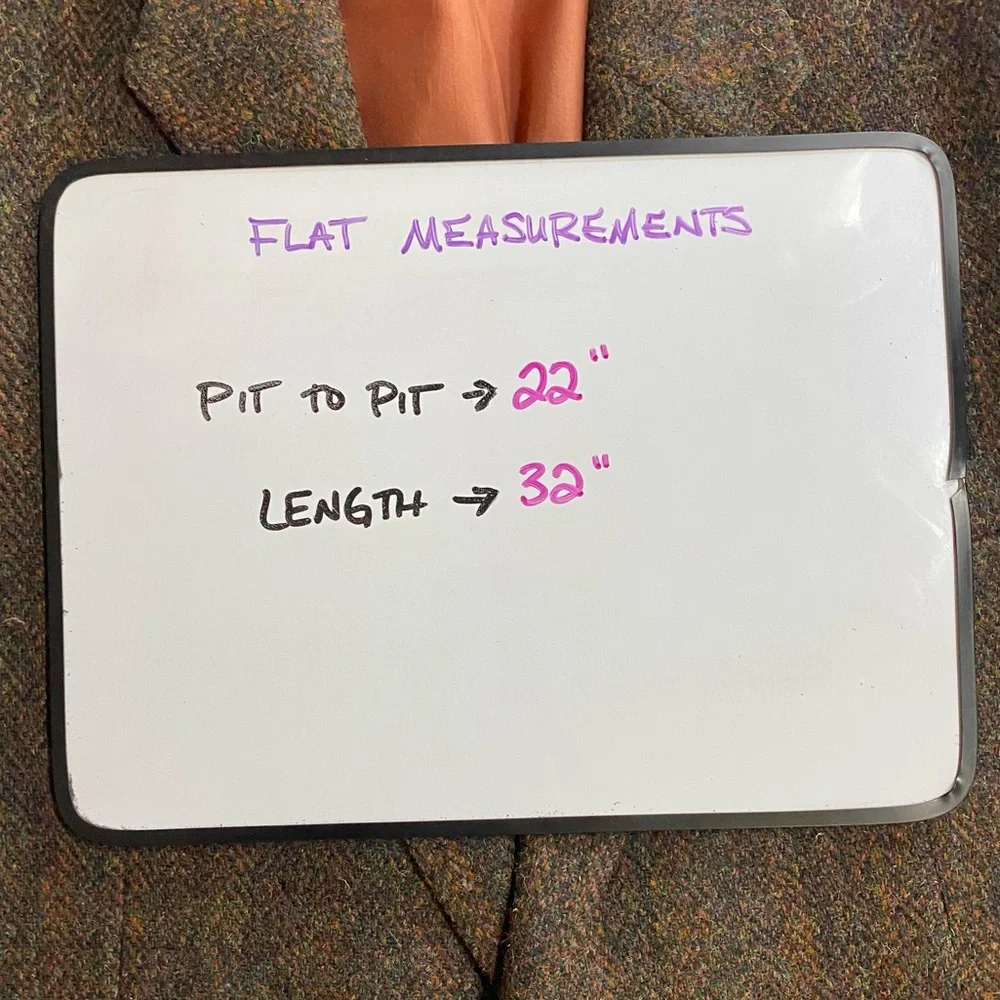 FLAT MEASUREMENTS
PIT TO PIT → 22"
LENGTH → 32"